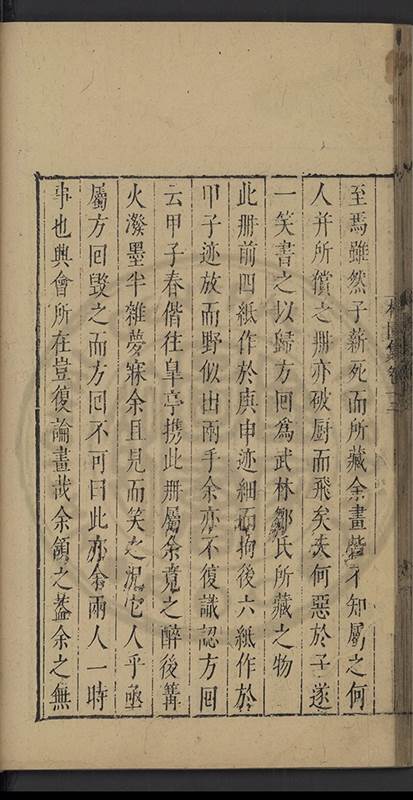 至焉雖然子薪死而所藏余畫皆不知屬之何
人并所償之册亦破厨而飛矣夫何惡於子遂
一笑書之以歸方回爲武林鄒氏所藏之物
此册前四紙作於庚申迹細而拘後六紙作於
甲子迹放而野似出兩手余亦不復識認方回
云甲子春偕往臯亭携此册屬余竟之醉後篝
火潑墨半雜夢寐余且見而笑之況它人乎亟
屬方回毀之而方回不可曰此亦余兩人一時
事也興會所在豈復論畫哉余頷之葢余之無